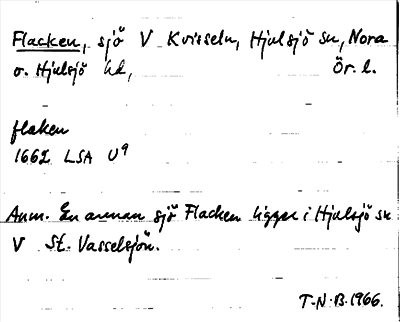 Flacken, sjö V Kvisseln, Hjulsjö sn, Nora
o. Hjulsjö hd, Ör. l.
flaken
1662 LSA U9
Anm. En annan sjö Flacken ligger i Hjulsjö sn
V St. Vasselsjön.
T-N:B.1966.